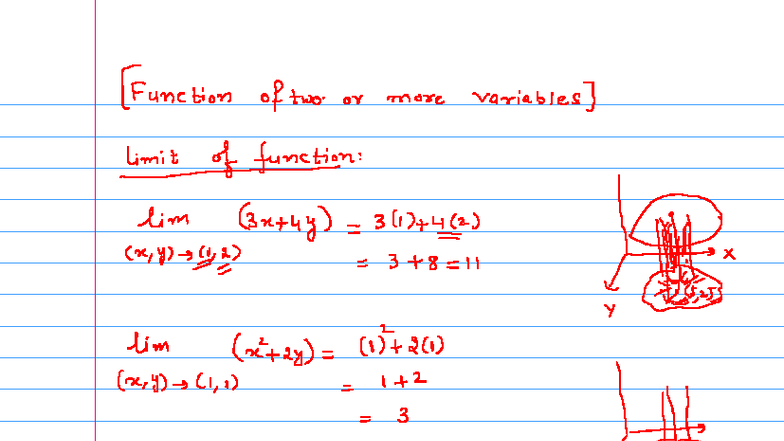 [Function of two or more variables]
Limit of function:
lim (3x+4y) = 3(1)+4(2)
(x,y)→(1,2)
= 3+8=11
X
Y
lim (x²+2y) = (1)²+2(1)
(x,y)→(1,1)
= 1+2
= 3